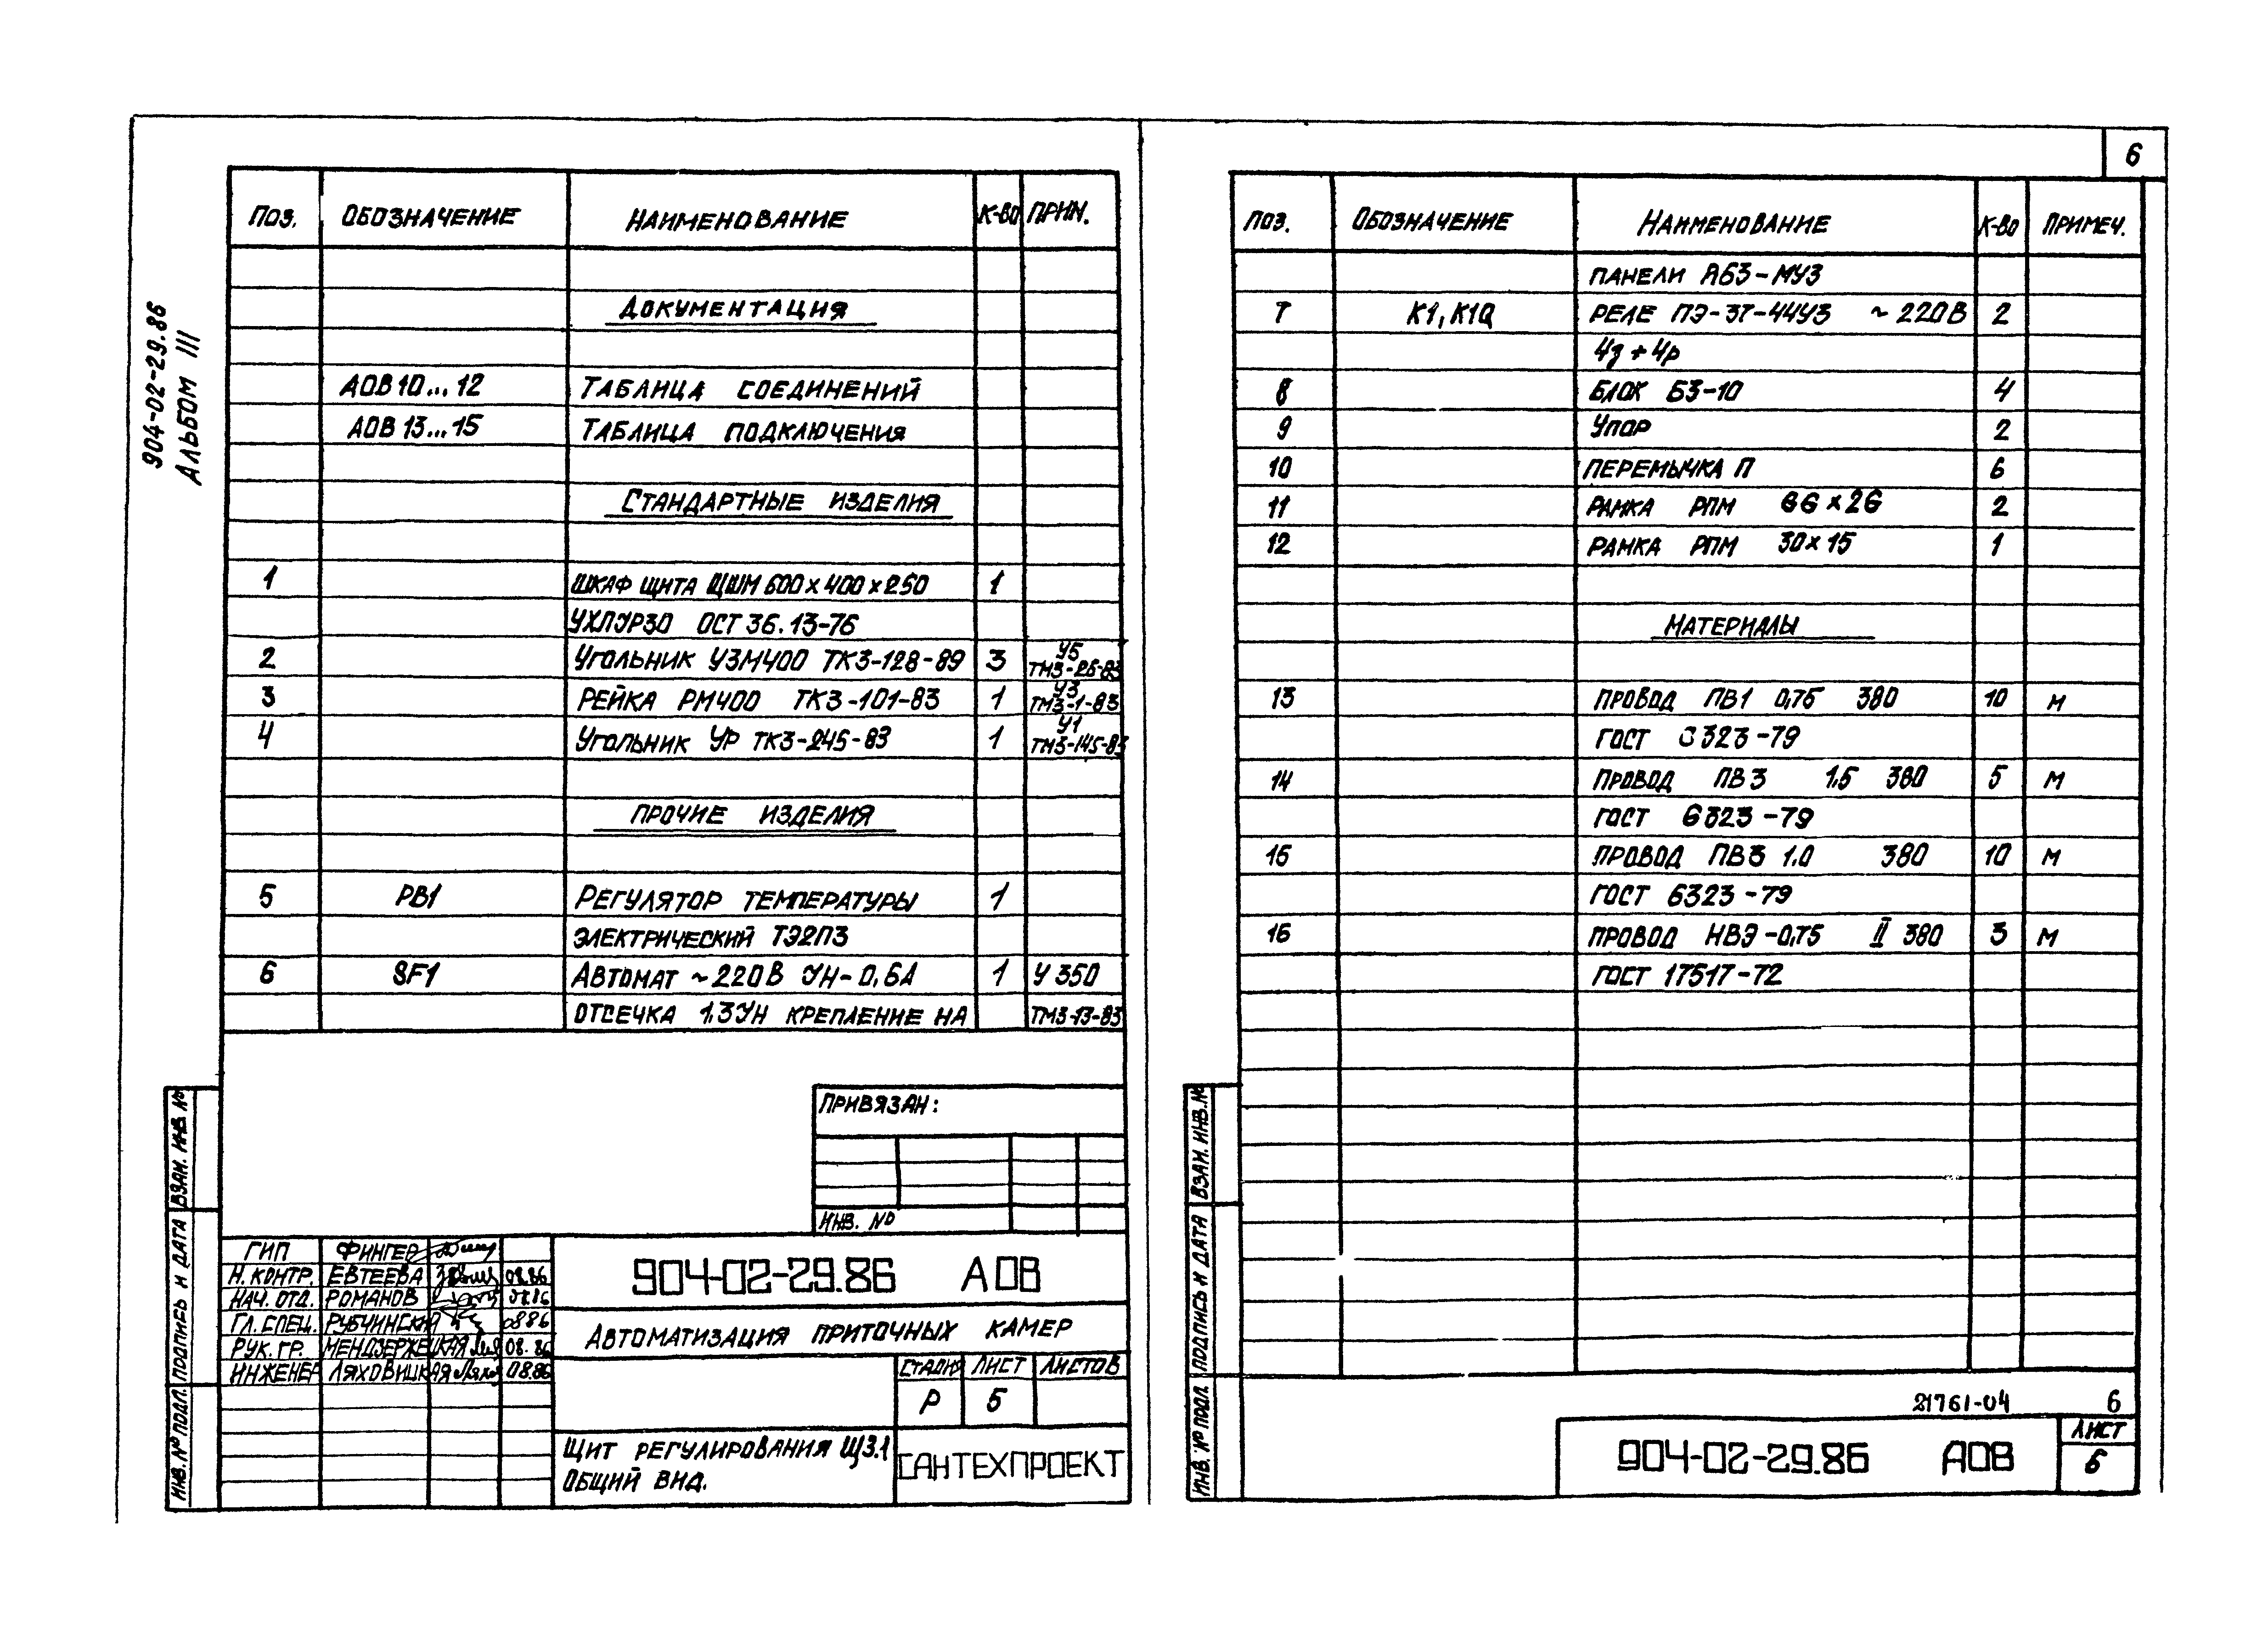 904-02-29.86
АЛЬБОМ III
ПОЗ. ОБОЗНАЧЕНИЕ НАИМЕНОВАНИЕ К-ВО ПРИМ.
ДОКУМЕНТАЦИЯ
АОВ 10...12 ТАБЛИЦА СОЕДИНЕНИЙ
АОВ 13...15 ТАБЛИЦА ПОДКЛЮЧЕНИЯ
СТАНДАРТНЫЕ ИЗДЕЛИЯ
1 ШКАФ ЩИТА ЩШМ 600х400х250 1
УХЛ4IP30 ОСТ 36.13-76
2 УГОЛЬНИК УЗМ400 ТК3-128-89 3 У5 ТМ3-26-83
3 РЕЙКА РМ400 ТК3-101-83 1 У3 ТМ3-1-83
4 УГОЛЬНИК УР ТК3-245-83 1 У1 ТМ3-145-83
ПРОЧИЕ ИЗДЕЛИЯ
5 РВ1 РЕГУЛЯТОР ТЕМПЕРАТУРЫ 1
ЭЛЕКТРИЧЕСКИЙ ТЭ2П3
6 SF1 АВТОМАТ ~220В УН-0,6А 1 У350
ОТСЕЧКА 1,3УН КРЕПЛЕНИЕ НА ТМ3-13-83
ПРИВЯЗАН:
ИНВ. №
ГИП ФИНГЕР
Н. КОНТР. ЕВТЕЕВА 08.86
НАЧ. ОТД. РОМАНОВ 08.86
ГЛ. СПЕЦ. РУБЧИНСКИЙ 0886
РУК. ГР. МЕНДЗЕРЖЕЦКАЯ 08.86
ИНЖЕНЕР ЛЯХОВИЦКАЯ 08.86
904-02-29.86 АОВ
АВТОМАТИЗАЦИЯ ПРИТОЧНЫХ КАМЕР
СТАДИЯ ЛИСТ ЛИСТОВ
Р 5
ЩИТ РЕГУЛИРОВАНИЯ Щ3.1
ОБЩИЙ ВИД.
САНТЕХПРОЕКТ
ИНВ. № ПОДЛ. ПОДПИСЬ И ДАТА ВЗАМ. ИНВ. №
6
ПОЗ. ОБОЗНАЧЕНИЕ НАИМЕНОВАНИЕ К-ВО ПРИМЕЧ.
ПАНЕЛИ А63-МУ3
7 К1, К1Q РЕЛЕ ПЭ-37-44У3 ~220В 2
4з+4р
8 БЛОК БЗ-10 4
9 УПОР 2
10 ПЕРЕМЫЧКА П 6
11 РАМКА РПМ 66х26 2
12 РАМКА РПМ 30х15 1
МАТЕРИАЛЫ
13 ПРОВОД ПВ1 0,75 380 10 М
ГОСТ 6323-79
14 ПРОВОД ПВ3 1,5 380 5 М
ГОСТ 6323-79
15 ПРОВОД ПВ3 1.0 380 10 М
ГОСТ 6323-79
16 ПРОВОД НВЭ-0,75 II 380 3 М
ГОСТ 17517-72
21761-04 6
904-02-29.86 АОВ
ЛИСТ
6
ИНВ. № ПОДЛ. ПОДПИСЬ И ДАТА ВЗАМ. ИНВ. №